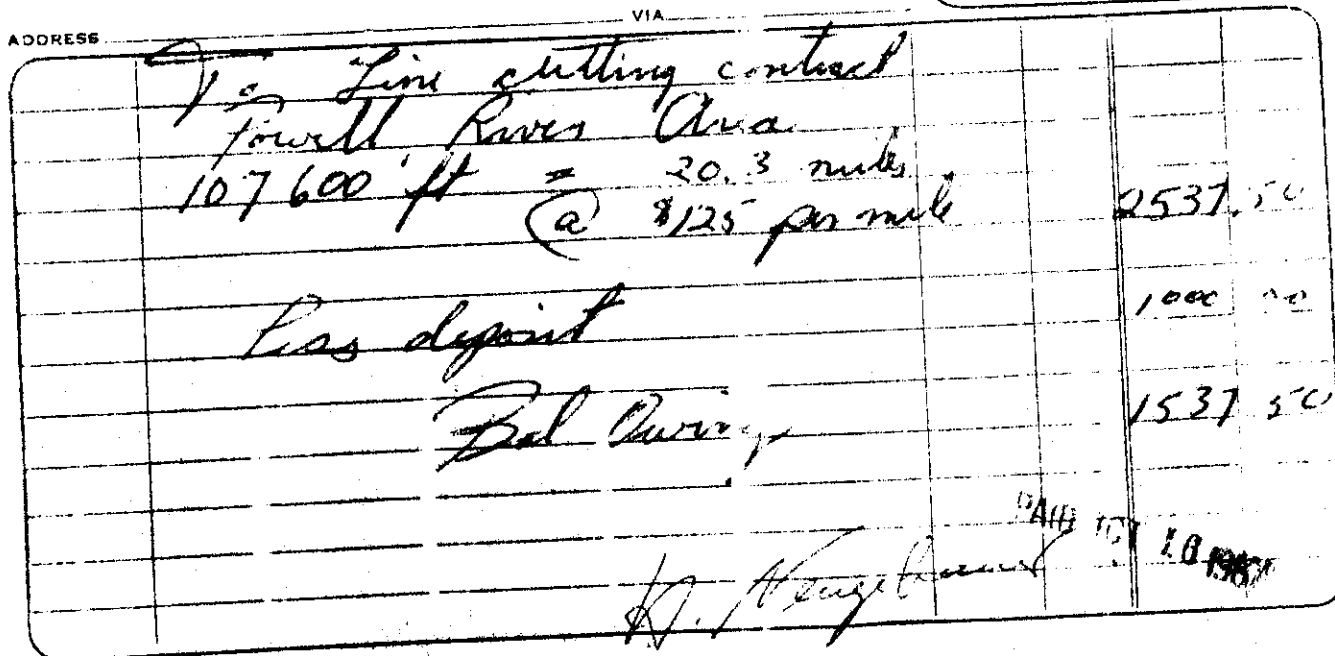 ADDRESS VIA
To Line cutting contract
Powell River Area
107600 ft = 20.3 miles
@ $125 per mile 2537.50
Less deposit 1000 00
Bal Owing 1537 50
PAID 10 1967
K.